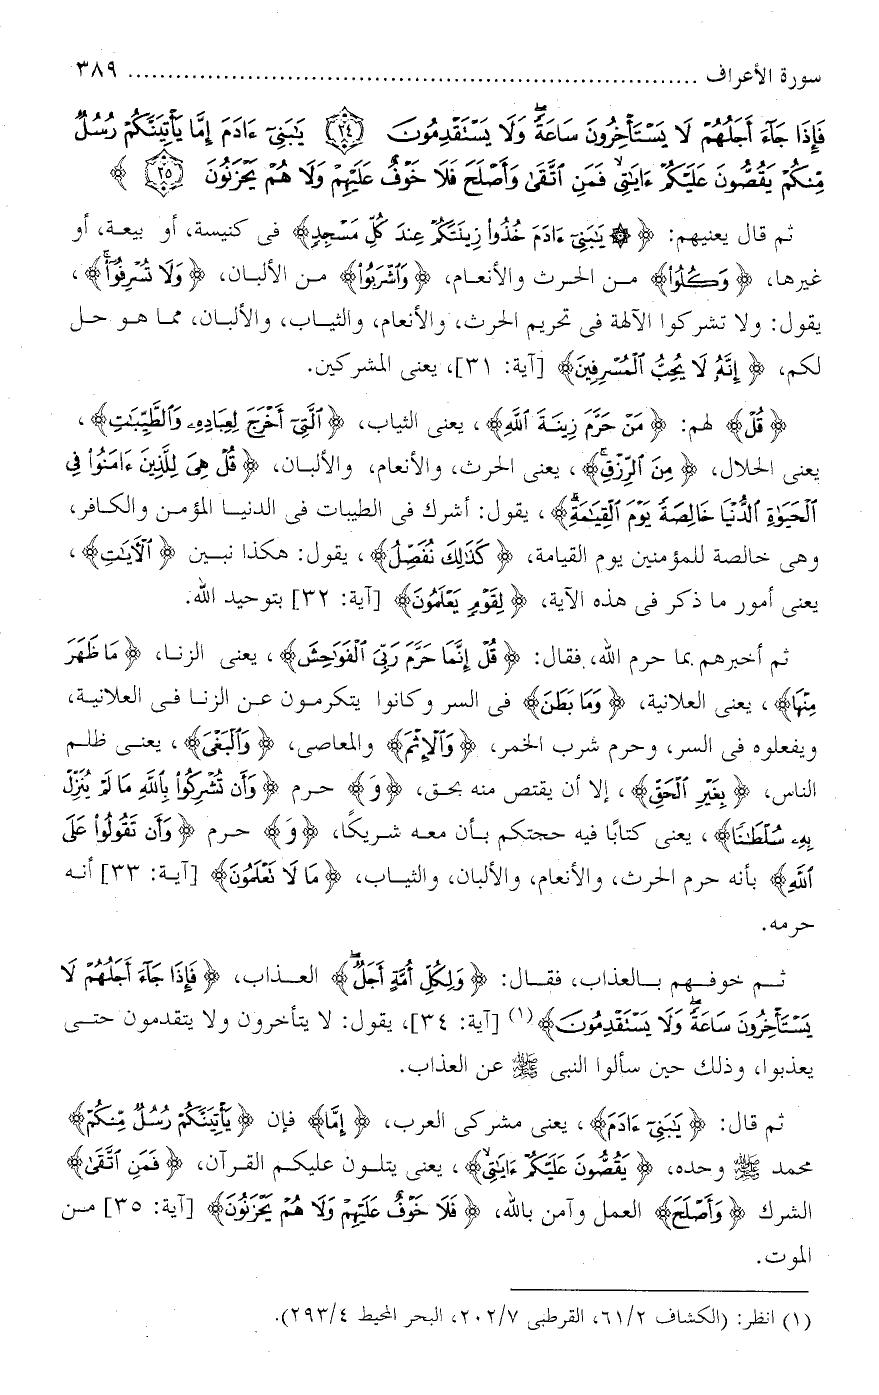 سورة الأعراف ........................................................................ ٣٨٩
فَإِذَا جَآءَ أَجَلُهُمْ لَا يَسْتَأْخِرُونَ سَاعَةً وَلَا يَسْتَقْدِمُونَ ﴿٣٤﴾ يَٰبَنِىٓ ءَادَمَ إِمَّا يَأْتِيَنَّكُمْ رُسُلٌ
مِّنكُمْ يَقُصُّونَ عَلَيْكُمْ ءَايَٰتِى فَمَنِ ٱتَّقَىٰ وَأَصْلَحَ فَلَا خَوْفٌ عَلَيْهِمْ وَلَا هُمْ يَحْزَنُونَ ﴿٣٥﴾ ﴾
ثم قال يعنيهم: ﴿ ۞ يَٰبَنِىٓ ءَادَمَ خُذُوا۟ زِينَتَكُمْ عِندَ كُلِّ مَسْجِدٍ﴾ فى كنيسة، أو بيعة، أو
غيرها، ﴿ وَكُلُوا۟﴾ من الحرث والأنعام، ﴿ وَٱشْرَبُوا۟﴾ من الألبان، ﴿ وَلَا تُسْرِفُوٓا۟﴾،
يقول: ولا تشركوا الآلهة فى تحريم الحرث، والأنعام، والثياب، والألبان، مما هو حل
لكم، ﴿ إِنَّهُۥ لَا يُحِبُّ ٱلْمُسْرِفِينَ﴾ [آية: ٣١]، يعنى المشركين.
﴿ قُلْ﴾ لهم: ﴿ مَنْ حَرَّمَ زِينَةَ ٱللَّهِ﴾، يعنى الثياب، ﴿ ٱلَّتِىٓ أَخْرَجَ لِعِبَادِهِۦ وَٱلطَّيِّبَٰتِ﴾،
يعنى الحلال، ﴿ مِنَ ٱلرِّزْقِ﴾، يعنى الحرث، والأنعام، والألبان، ﴿ قُلْ هِىَ لِلَّذِينَ ءَامَنُوا۟ فِى
ٱلْحَيَوٰةِ ٱلدُّنْيَا خَالِصَةً يَوْمَ ٱلْقِيَٰمَةِ﴾، يقول: أشرك فى الطيبات فى الدنيا المؤمن والكافر،
وهى خالصة للمؤمنين يوم القيامة، ﴿ كَذَٰلِكَ نُفَصِّلُ﴾، يقول: هكذا نبين ﴿ ٱلْأَيَٰتِ﴾،
يعنى أمور ما ذكر فى هذه الآية، ﴿ لِقَوْمٍ يَعْلَمُونَ﴾ [آية: ٣٢] بتوحيد الله.
ثم أخبرهم بما حرم الله، فقال: ﴿ قُلْ إِنَّمَا حَرَّمَ رَبِّىَ ٱلْفَوَٰحِشَ﴾، يعنى الزنا، ﴿ مَا ظَهَرَ
مِنْهَا﴾، يعنى العلانية، ﴿ وَمَا بَطَنَ﴾ فى السر وكانوا يتكرمون عن الزنا فى العلانية،
ويفعلوه فى السر، وحرم شرب الخمر، ﴿ وَٱلْإِثْمَ﴾ والمعاصى، ﴿ وَٱلْبَغْىَ﴾، يعنى ظلم
الناس، ﴿ بِغَيْرِ ٱلْحَقِّ﴾، إلا أن يقتص منه بحق، ﴿ وَ﴾ حرم ﴿ وَأَن تُشْرِكُوا۟ بِٱللَّهِ مَا لَمْ يُنَزِّلْ
بِهِۦ سُلْطَٰنًا﴾، يعنى كتابًا فيه حجتكم بأن معه شريكًا، ﴿ وَ﴾ حرم ﴿ وَأَن تَقُولُوا۟ عَلَى
ٱللَّهِ﴾ بأنه حرم الحرث، والأنعام، والألبان، والثياب، ﴿ مَا لَا تَعْلَمُونَ﴾ [آية: ٣٣] أنه
حرمه.
ثم خوفهم بالعذاب، فقال: ﴿ وَلِكُلِّ أُمَّةٍ أَجَلٌ﴾ العذاب، ﴿ فَإِذَا جَآءَ أَجَلُهُمْ لَا
يَسْتَأْخِرُونَ سَاعَةً وَلَا يَسْتَقْدِمُونَ﴾(١) [آية: ٣٤]، يقول: لا يتأخرون ولا يتقدمون حتى
يعذبوا، وذلك حين سألوا النبى ﷺ عن العذاب.
ثم قال: ﴿ يَٰبَنِىٓ ءَادَمَ﴾، يعنى مشركى العرب، ﴿ إِمَّا﴾ فإن ﴿ يَأْتِيَنَّكُمْ رُسُلٌ مِّنكُمْ﴾
محمد ﷺ وحده، ﴿ يَقُصُّونَ عَلَيْكُمْ ءَايَٰتِى﴾، يعنى يتلون عليكم القرآن، ﴿ فَمَنِ ٱتَّقَىٰ﴾
الشرك ﴿ وَأَصْلَحَ﴾ العمل وآمن بالله، ﴿ فَلَا خَوْفٌ عَلَيْهِمْ وَلَا هُمْ يَحْزَنُونَ﴾ [آية: ٣٥] من
الموت.
(١) انظر: (الكشاف ٦١/٢، القرطبى ٢٠٢/٧، البحر المحيط ٢٩٣/٤).